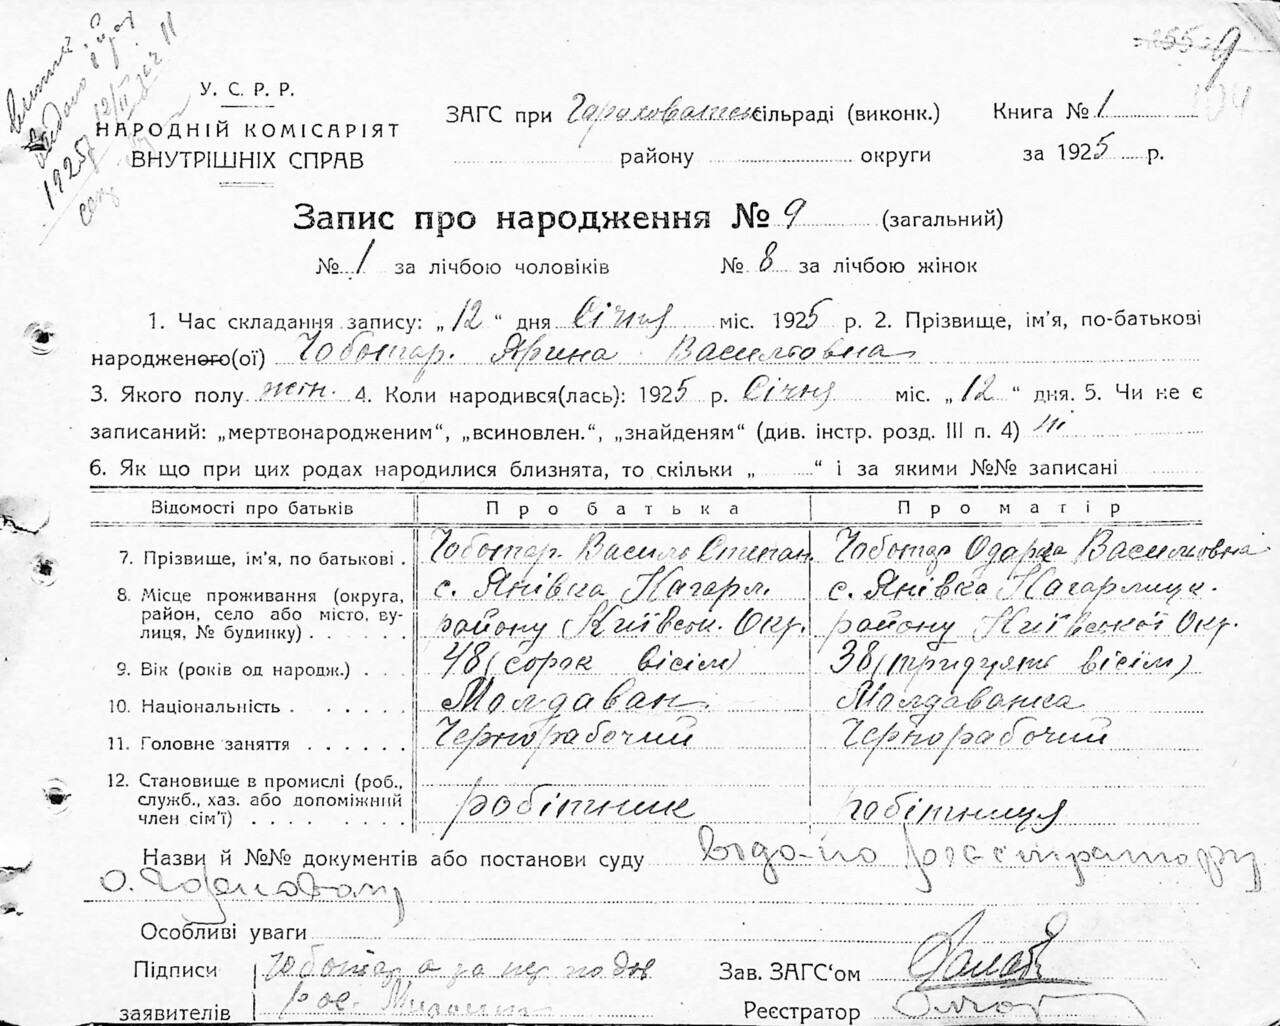 255 9
104
У. С. Р. Р.
НАРОДНІЙ КОМІСАРІЯТ
ВНУТРІШНІХ СПРАВ
ЗАГС при Гороховатськ сільраді (виконк.) Книга № 1
району округи за 1925 р.
Запис про народження № 9 (загальний)
№ 1 за лічбою чоловіків № 8 за лічбою жінок
1. Час складання запису: „12“ дня Січня міс. 1925 р. 2. Прізвище, ім’я, по-батькові
народженого(ої) Чоботар. Ярина Василловна
3. Якого полу жін. 4. Коли народився(лась): 1925 р. Січня міс. „12“ дня. 5. Чи не є
записаний: „мертвонародженим“, „всиновлен.“, „знайденям“ (див. інстр. розд. III п. 4) ні
6. Як що при цих родах народилися близнята, то скільки „ “ і за якими №№ записані
Відомості про батьків Про батька Про матір
7. Прізвище, ім’я, по батькові . Чоботар. Василь Степан. Чоботар Одарка Василловна
8. Місце проживання (округа, район, село або місто, вулиця, № будинку) с. Янівка Кагарл. району Київськ. Окр. с. Янівка Кагарлицк. району Київської Окр.
9. Вік (років од народж.) . . . 48 (сорок вісім) 38 (тридцять вісім)
10. Національність . . . . . . Молдаван Молдаванка
11. Головне заняття . . . . . . Чернорабочий Чернорабочий
12. Становище в промислі (роб., служб., хаз. або допоміжний член сім’ї) . . . . . . . . робітник робітниця
Назви й №№ документів або постанови суду
Особливі уваги
Підписи Чоботар а за
заявителів
Зав. ЗАГС‘ом
Реєстратор